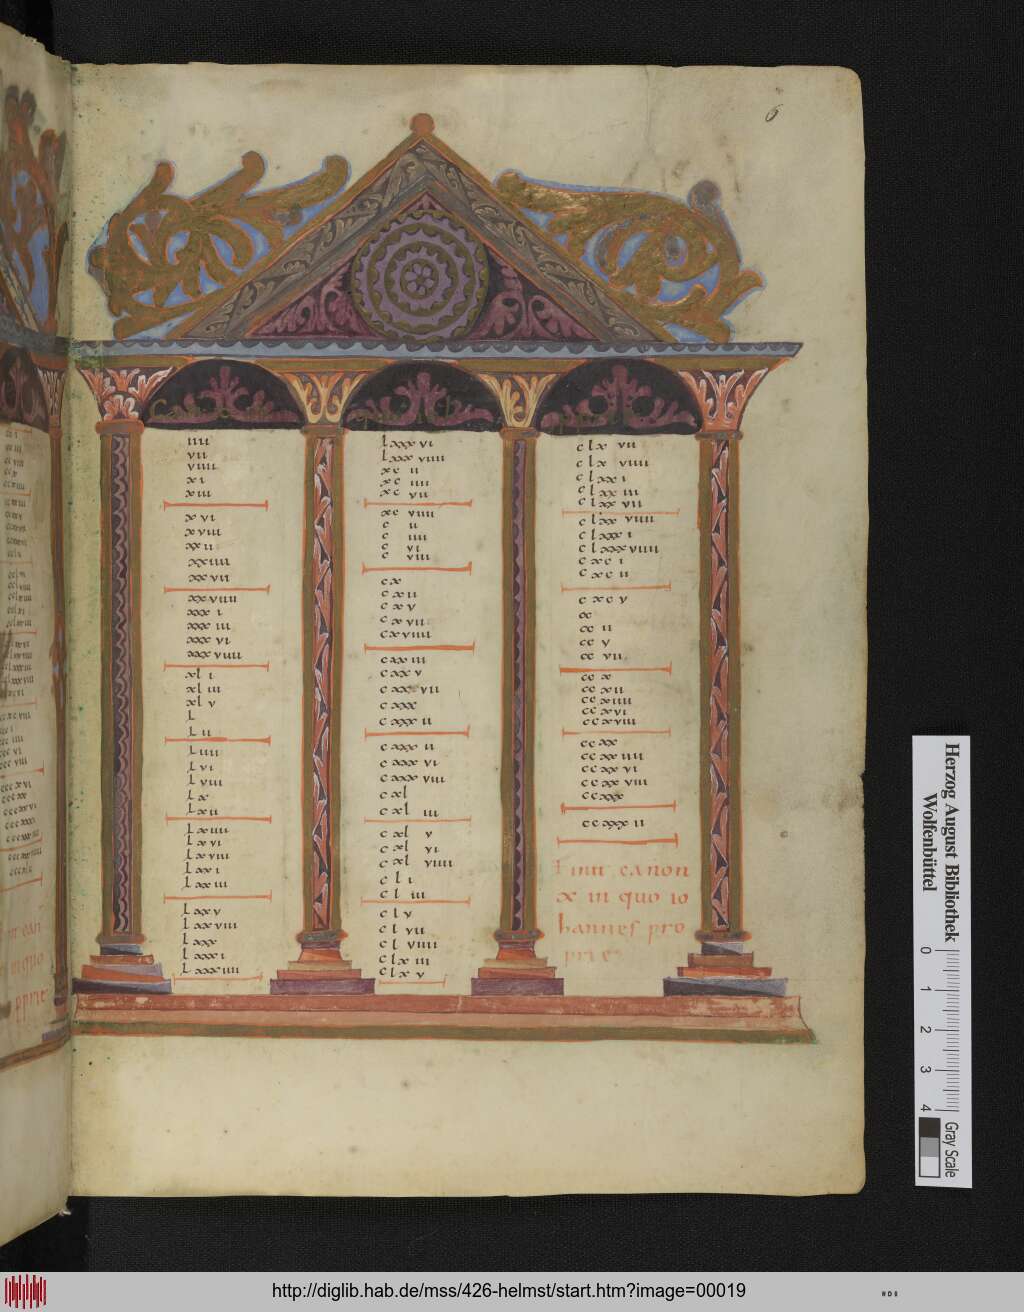 6
iiii
vii
viiii
xi
xiii
xvi
xviii
xxii
xxiiii
xxvii
xxviiii
xxxi
xxxiii
xxxvi
xxxviiii
xli
xliii
xlv
l
lii
liiii
lvi
lviii
lx
lxii
lxiiii
lxvi
lxviii
lxxi
lxxiii
lxxv
lxxviii
lxxx
lxxxi
lxxxiiii
lxxxvi
lxxxviiii
xc ii
xc iiii
xc vii
xc viiii
c ii
c iiii
c vi
c viii
cx
cxii
cxv
cxvii
cxviiii
cxxiii
cxxv
cxxvii
cxxx
cxxxii
cxxxii
cxxxvi
cxxxviii
cxl
cxl iii
cxl v
cxl vi
cxl viiii
cli
cl iii
clv
cl vii
cl viiii
clxiii
clxv
clx vii
clx viiii
clxxi
clxxiii
clxxvii
clxx viiii
clxxxi
clxxxviiii
cxci
cxcii
cxcv
cc
cc ii
cc v
cc vii
cc x
cc xii
cc xiiii
cc xvi
cc xviii
cc xx
cc xxiiii
cc xxvi
cc xxviii
ccxxx
ccxxxii
Finit canon
x in quo io
hannes pro
prie
Herzog August Bibliothek
Wolfenbüttel
0 1 2 3 4
Gray Scale
http://diglib.hab.de/mss/426-helmst/start.htm?image=00019